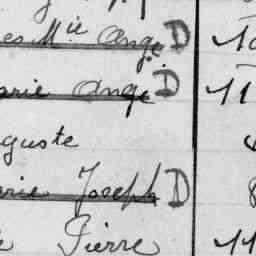 es Mie Ange D
arie Ange D 11
guste
arie Joseph D 8
e Pierre 11